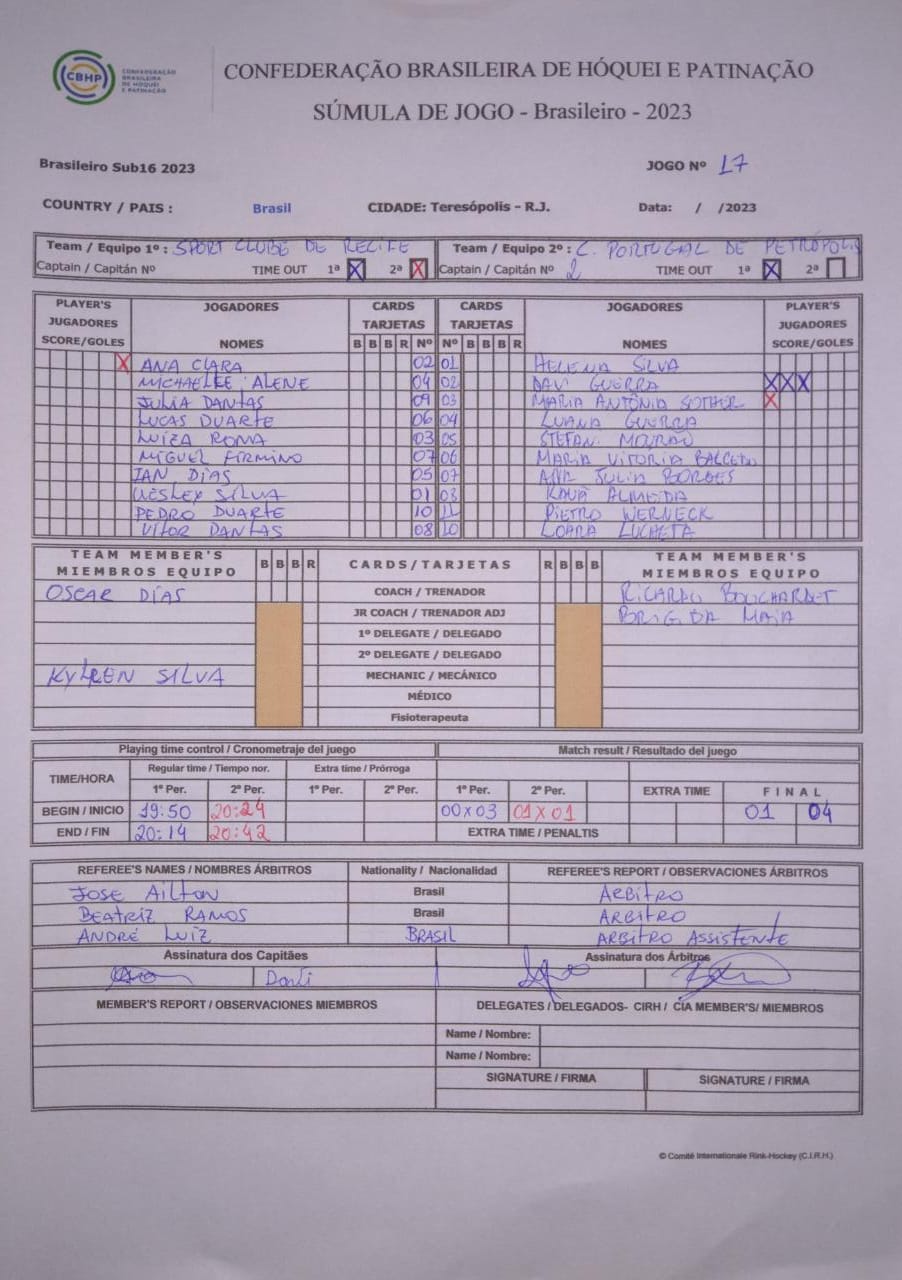 CBHP CONFEDERAÇÃO BRASILEIRA DE HÓQUEI E PATINAÇÃO
CONFEDERAÇÃO BRASILEIRA DE HÓQUEI E PATINAÇÃO
SÚMULA DE JOGO - Brasileiro - 2023
Brasileiro Sub16 2023 JOGO Nº 17
COUNTRY / PAIS : Brasil CIDADE: Teresópolis - R.J. Data: / /2023
Team / Equipo 1º : SPORT CLUBE DE RECIFE Team / Equipo 2º : C. PORTUGAL DE PETRÓPOLIS
Captain / Capitán Nº TIME OUT 1ª X 2ª X Captain / Capitán Nº 2 TIME OUT 1ª X 2ª
PLAYER'S JOGADORES CARDS CARDS JOGADORES PLAYER'S
JUGADORES TARJETAS TARJETAS JUGADORES
SCORE/GOLES NOMES B B B R Nº Nº B B B R NOMES SCORE/GOLES
X ANA CLARA 02 01 HELENA SILVA
ALENE 04 02 DAVI GUERRA X X X
JULIA DANTAS 09 03 MARIA ANTÔNIA X
LUCAS DUARTE 06 04 LUANA GUERRA
LUÍZA ROMA 03 05 STEFANI MOURÃO
MIGUEL FIRMINO 07 06 MARIA VITORIA
IAN DÍAS 05 07 ANA JULIA BORGES
WESLEY SILVA 01 08 KAUÃ ALMEIDA
PEDRO DUARTE 10 11 PIETRO WERNECK
VITOR DANTAS 08 10 LOARA
TEAM MEMBER'S B B B R CARDS/TARJETAS R B B B TEAM MEMBER'S
MIEMBROS EQUIPO MIEMBROS EQUIPO
OSCAR DÍAS COACH / TRENADOR RICARDO
JR COACH / TRENADOR ADJ BRIGIDA MAIA
1º DELEGATE / DELEGADO
2º DELEGATE / DELEGADO
SILVA MECHANIC / MECÁNICO
MÉDICO
Fisioterapeuta
Playing time control / Cronometraje del juego Match result / Resultado del juego
TIME/HORA Regular time / Tiempo nor. Extra time / Prórroga
1º Per. 2º Per. 1º Per. 2º Per. 1º Per. 2º Per. EXTRA TIME F I N A L
BEGIN / INICIO 19:50 20:24 00x03 01x01 01 04
END / FIN 20:14 20:42 EXTRA TIME / PENALTIS
REFEREE'S NAMES / NOMBRES ÁRBITROS Nationality / Nacionalidad REFEREE'S REPORT / OBSERVACIONES ÁRBITROS
JOSE AILTON Brasil ARBITRO
BEATRIZ RAMOS Brasil ARBITRO
ANDRÉ LUIZ BRASIL ARBITRO ASSISTENTE
Assinatura dos Capitães Assinatura dos Árbitros
MEMBER'S REPORT / OBSERVACIONES MIEMBROS DELEGATES / DELEGADOS- CIRH / CIA MEMBER'S/ MIEMBROS
Name / Nombre:
Name / Nombre:
SIGNATURE / FIRMA SIGNATURE / FIRMA
© Comité Internationale Rink-Hockey (C.I.R.H.)